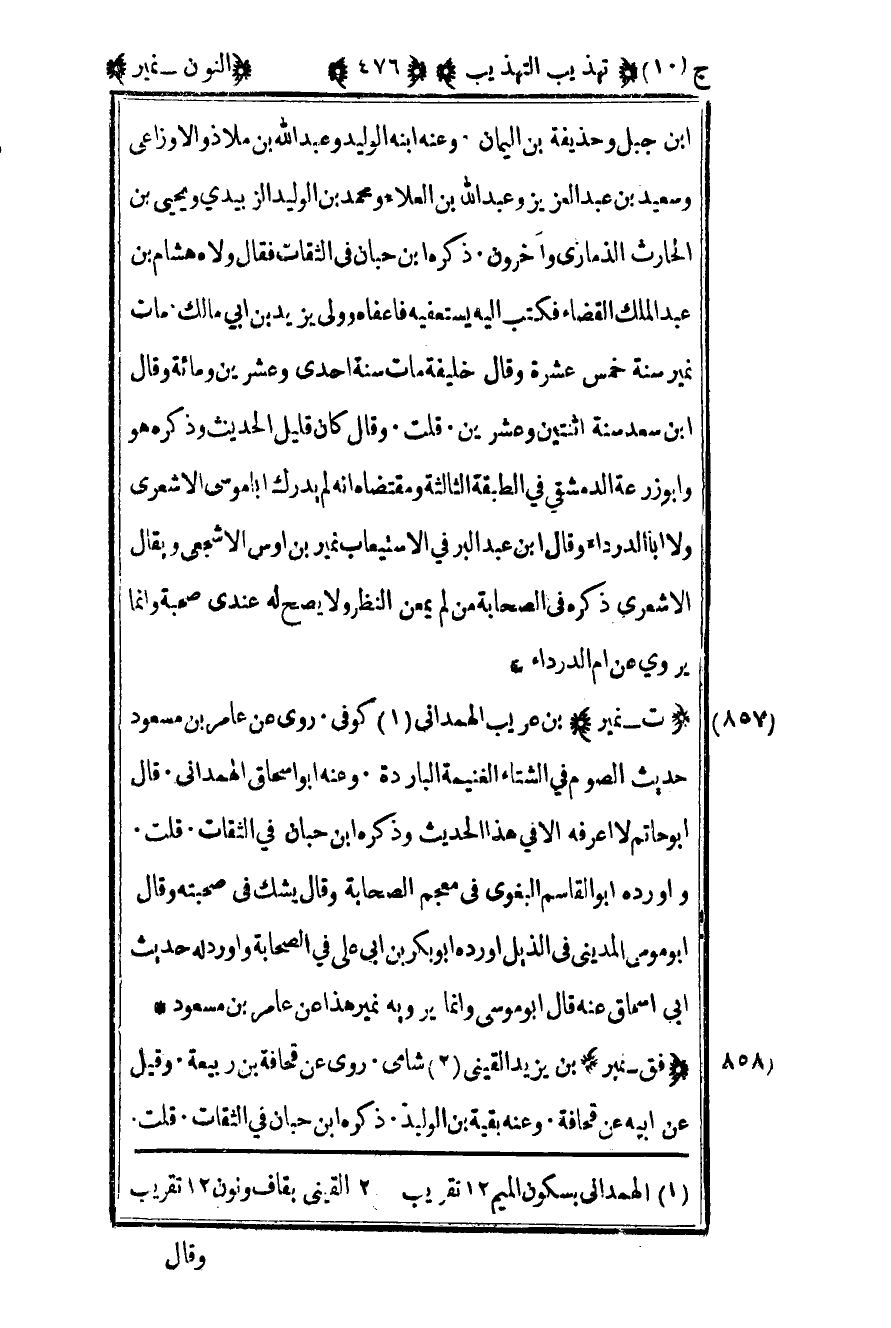 ج (١٠) ﴿ تهذيب التهذيب ﴾ ﴿ ٤٧٦ ﴾ ﴿ النون ـ نمير ﴾
ابن جبل وحذيفة بن اليمان · وعنه ابنه الوليد وعبدالله بن ملاذ والاوزاعى
وسعيد بن عبدالعزيز وعبدالله بن العلاء ومحمد بن الوليد الزبيدي ويحيى بن
الحارث الذمارى وآخرون · ذكره ابن حبان فى الثقات فقال ولاه هشام بن
عبدالملك القضاء فكتب اليه يستعفيه فاعفاه وولى يزيد بن ابي مالك · مات
نمير سنة خمس عشرة وقال خليفة مات سنة احدى وعشرين ومائة وقال
ابن سعد سنة اثنتين وعشرين · قلت · وقال كان قليل الحديث وذكره هو
وابوزرعة الدمشقي في الطبقة الثالثة ومقتضاه انه لم يدرك اباموسى الاشعرى
ولا اباالدرداء وقال ابن عبدالبر في الاستيعاب نمير بن اوس الاشجعى ويقال
الاشعرى ذكره فى الصحابة من لم يمعن النظر ولا يصح له عندى صحبة وانما
يروي عن ام الدرداء *
(٨٥٧) ﴿ ت ـ نمير ﴾ بن عريب الهمدانى (١) كوفى · روى عن عامر بن مسعود
حديث الصوم في الشتاء الغنيمة الباردة · وعنه ابواسحاق الهمدانى · قال
ابوحاتم لا اعرفه الا في هذا الحديث وذكره ابن حبان في الثقات · قلت ·
و اورده ابوالقاسم البغوى فى معجم الصحابة وقال يشك فى صحبته وقال
ابوموسى المدينى فى الذيل اورده ابوبكر بن ابى على في الصحابة واورد له حديث
ابي اسماق عنه قال ابوموسى وانما يرويه نمير هذا عن عامر بن مسعود *
(٨٥٨ ﴿ فق ـ نمير ﴾ بن يزيد القينى (٢) شامى · روى عن قحافة بن ربيعة · وقيل
عن ابيه عن قحافة · وعنه بقية بن الوليد · ذكره ابن حبان في الثقات · قلت ·
(١) الهمدانى بسكون الميم ١٢ تقريب ٢ القينى بقاف ونون ١٢ تقريب
وقال